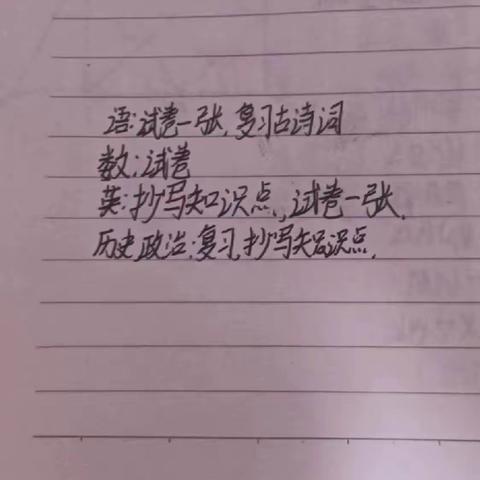 语:试卷一张,复习古诗词
数:试卷
英:抄写知识点,试卷一张.
历史政治:复习,抄写知识点.